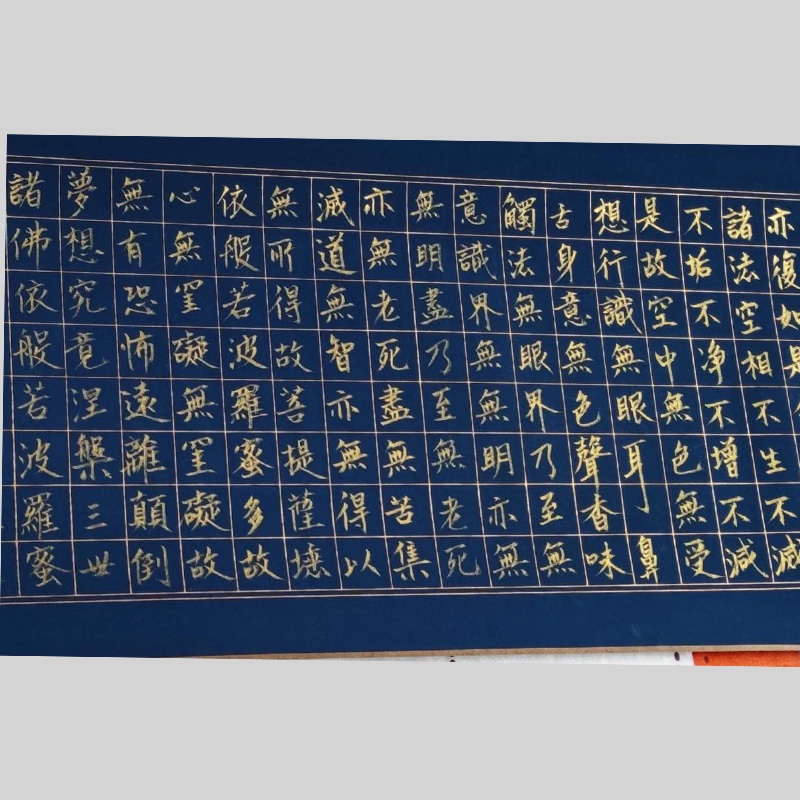 亦復如是
諸法空相不生不滅
不垢不净不增不減
是故空中無色無受
想行識無眼耳鼻
舌身意無色聲香味
觸法無眼界乃至無
意識界無無明亦無
無明盡乃至無老死
亦無老死盡無苦集
滅道無智亦無得以
無所得故菩提薩埵
依般若波羅蜜多故
心無罣礙無罣礙故
無有恐怖遠離顛倒
夢想究竟涅槃三世
諸佛依般若波羅蜜